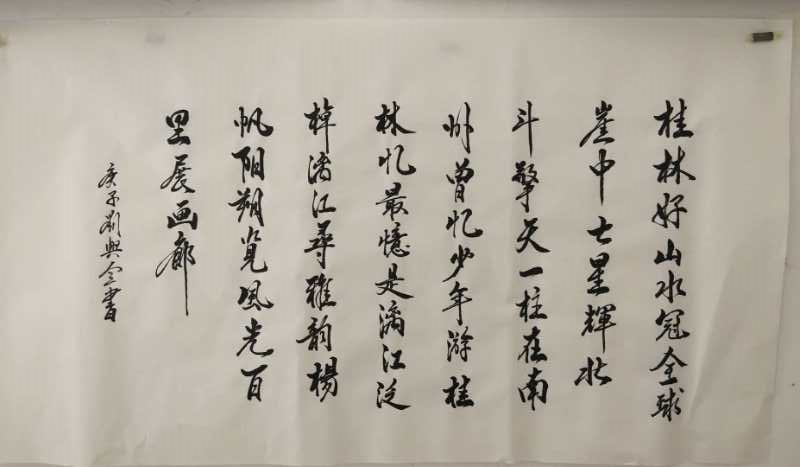 桂林好山水冠全球
崖中七星輝北
斗擎天一柱在南
州曾忆少年游桂
林忆最憶是漓江泛
棹漓江尋雅韵楊
帆阳朔览風光百
里展画廊
庚子劉興全書